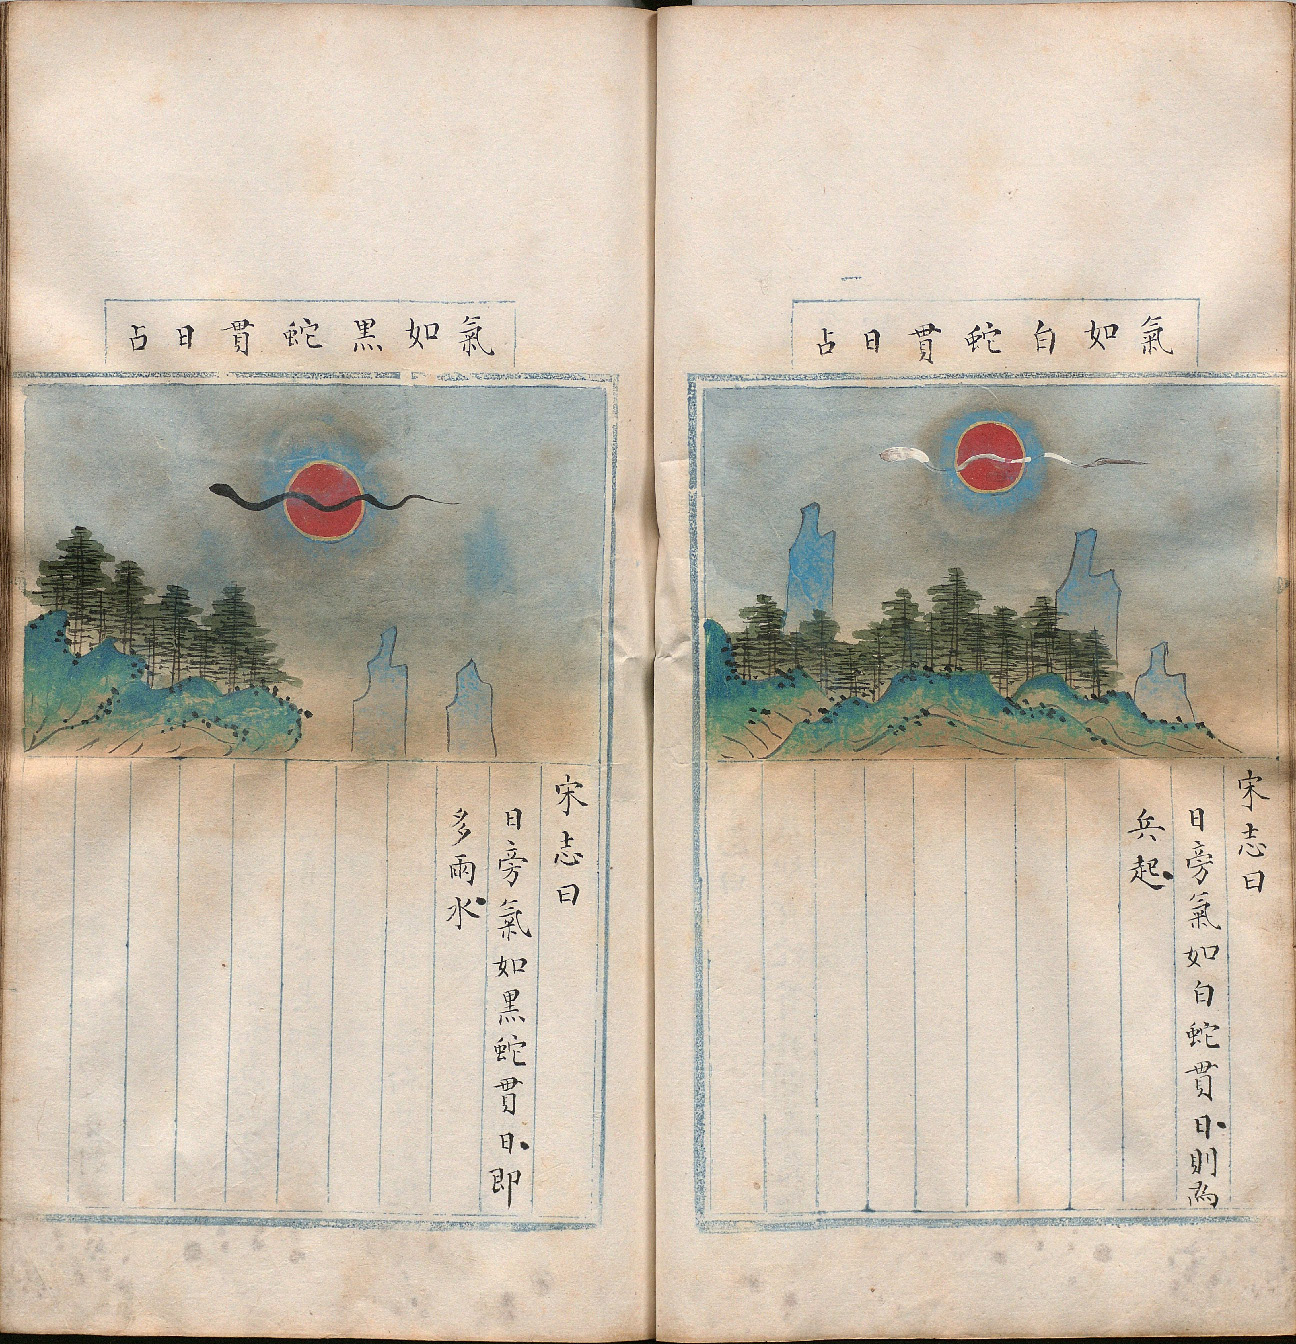 氣如白蛇貫日占
宋志曰
日旁氣如白蛇貫日則為
兵起
氣如黑蛇貫日占
宋志曰
日旁氣如黑蛇貫日即
多雨水